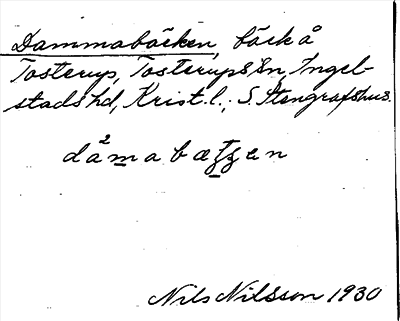 Dammabäcken, bäck å
Tosterup, Tosterups sn, Ingel-
stads hd, Krist. l.; S. Stengrafshus.
da²mabæʒʒen
Nils Nilsson 1930